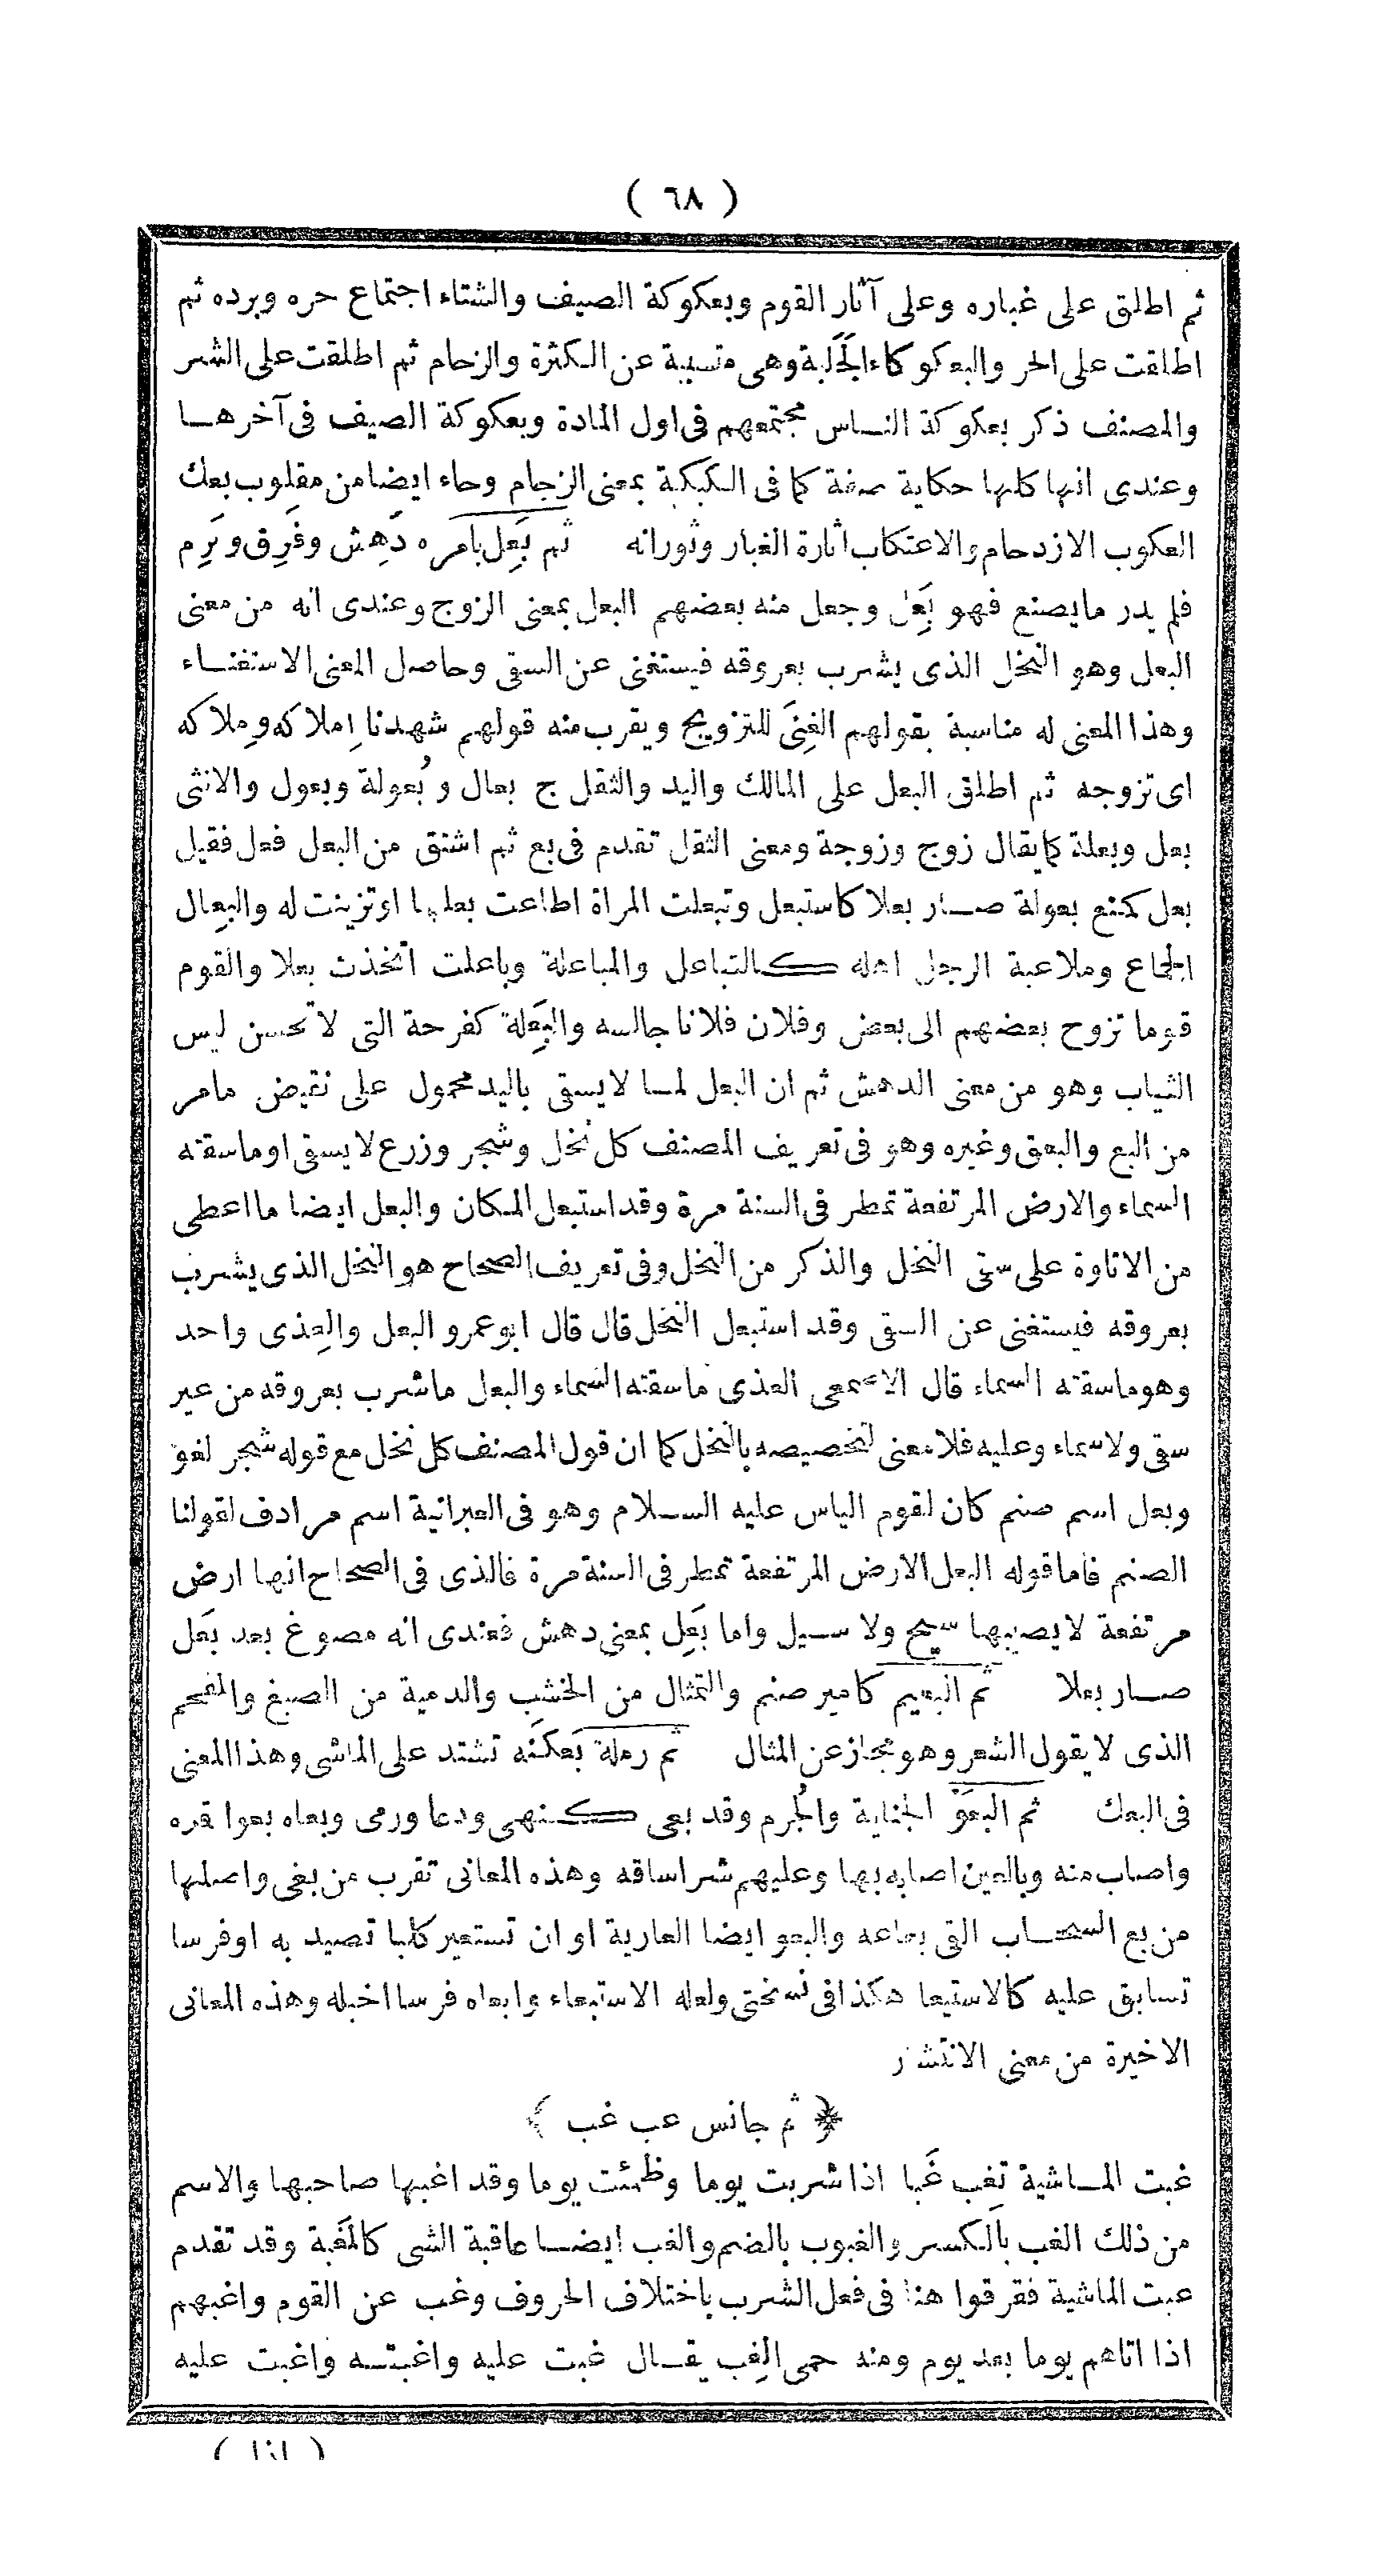 ( ٦٨ )
ثم اطلق على غباره وعلى آثار القوم وبعكوكة الصيف والشتاء اجتماع حره وبرده ثم
اطلقت على الحر والبعكوكاء الجَلَبة وهى متسببة عن الكثرة والزحام ثم اطلقت على الشر
والمصنف ذكر بعكوكة الناس مجتمعهم فى اول المادة وبعكوكة الصيف فى آخرها
وعندى انها كلها حكاية صفة كما فى الكبكبة بمعنى الزحام وجاء ايضا من مقلوب بعك
العكوب الازدحام والاعتكاب اثارة الغبار وثورانه ثم بَعِل بامره دَهِش وفَرِق وبَرِم
فلم يدر ما يصنع فهو بَعِل وجعل منه بعضهم البعل بمعنى الزوج وعندى انه من معنى
البعل وهو النخل الذى يشرب بعروقه فيستغنى عن السقى وحاصل المعنى الاستغناء
وهذا المعنى له مناسبة بقولهم الغِنَى للتزويج ويقرب منه قولهم شهدنا اِملاكه ومِلاكه
اى تزوجه ثم اطلق البعل على المالك واليد والثقل ج بعال وبُعولة وبعول والانثى
بعل وبعلة كما يقال زوج وزوجة ومعنى الثقل تقدم فى بع ثم اشتق من البعل فعل فقيل
بعل كمنع بعولة صار بعلا كاستبعل وتبعلت المراة اطاعت بعلها او تزينت له والبِعال
الجماع وملاعبة الرجل اهله كالتباعل والمباعلة وباعلت اتخذت بعلا والقوم
قوما تزوج بعضهم الى بعض وفلان فلانا جالسه والبَعِلة كفرحة التى لا تحسن لبس
الثياب وهو من معنى الدهش ثم ان البعل لما لا يسقى باليد محمول على نقيض ما مر
من البع والبعق وغيره وهو فى تعريف المصنف كل نخل وشجر وزرع لا يسقى او ما سقته
السماء والارض المرتفعة تمطر فى السنة مرة وقد استبعل المكان والبعل ايضا ما اعطى
من الاتاوة على سقى النخل والذكر من النخل وفى تعريف الصحاح هو النخل الذى يشرب
بعروقه فيستغنى عن السقى وقد استبعل النخل قال قال ابو عمرو البعل والعِذى واحد
وهو ما سقته السماء قال الاصمعى العذى ما سقته السماء والبعل ما شرب بعروقه من غير
سقى ولا سماء وعليه فلا معنى لتخصيصه بالنخل كما ان قول المصنف كل نخل مع قوله شجر لغو
وبعل اسم صنم كان لقوم الياس عليه السلام وهو فى العبرانية اسم مرادف لقولنا
الصنم فاما قوله البعل الارض المرتفعة تمطر فى السنة مرة فالذى فى الصحاح انها ارض
مرتفعة لا يصيبها سيح ولا سيل واما بَعِل بمعنى دهش فعندى انه مصوغ بعد بَعَل
صار بعلا ثم البعيم كامير صنم والتمثال من الخشب والدمية من الصبغ والمفحم
الذى لا يقول الشعر وهو مجاز عن المثال ثم رملة بَعكَنَه تشتد على الماشى وهذا المعنى
فى البعك ثم البعَوْ الجناية والجُرم وقد بعى كنهى ودعا ورمى وبعاه بعوا قره
واصاب منه وبالعين اصابه بها وعليهم شرا ساقه وهذه المعانى تقرب من بغى واصلها
من بع السحاب القى بعاعه والبعو ايضا العارية او ان تستعير كلبا تصيد به او فرسا
تسابق عليه كالاستيعا هكذا فى نسختى ولعله الاستبعاء وابعاه فرسا اخبله وهذه المعانى
الاخيرة من معنى الانتشار
﴿ ثم جانس عب غب ﴾
غبت الماشية تغب غَبا اذا شربت يوما وظمئت يوما وقد اغبها صاحبها والاسم
من ذلك الغب بالكسر والغبوب بالضم والغب ايضا عاقبة الشى كالمَغبة وقد تقدم
عبت الماشية ففرقوا هنا فى فعل الشرب باختلاف الحروف وغب عن القوم واغبهم
اذا اتاهم يوما بعد يوم ومنه حمى الغِب يقال غبت عليه واغبته واغبت عليه
( اذا )